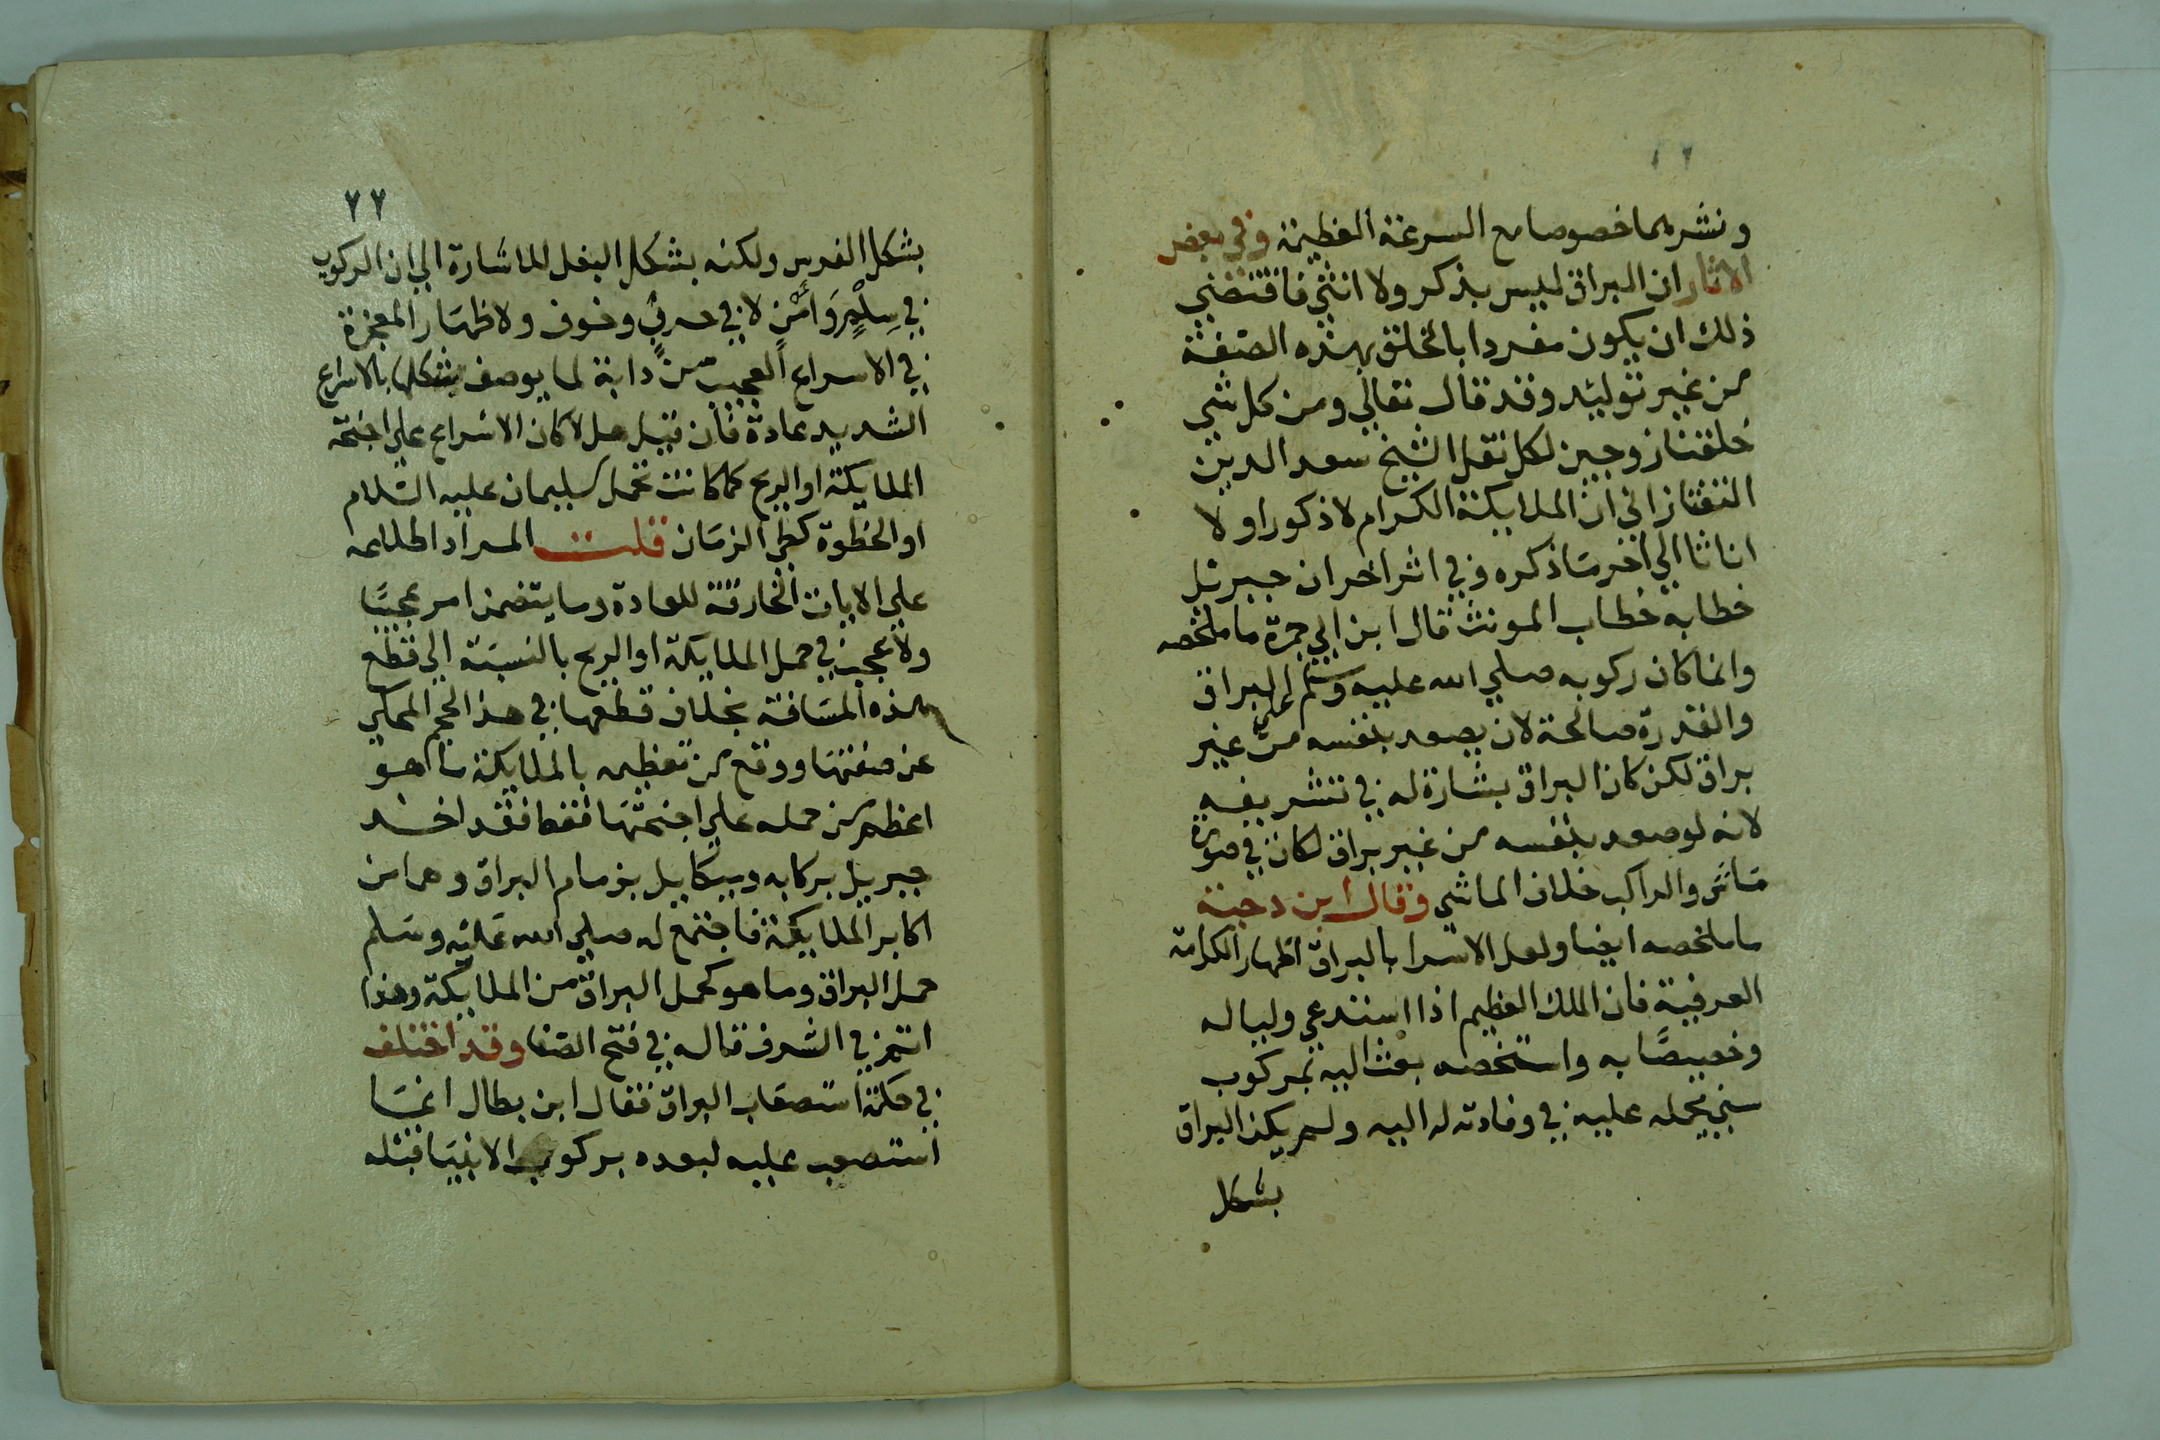 ونشرهما خصوصا مع السرعة العظيمة وفي بعض
الاثار ان البراق ليس بذكر ولا انثي فاقتضي
ذلك ان يكون مفردا بالخلق بهذه الصفة
من غير توليد وقد قال تعالي ومن كل شي
خلقنا زوجين لكل نقل الشيخ سعد الدين
التفتازاني ان الملايكة الكرام لا ذكورا ولا
اناثا الي اخر ما ذكره وفي اثر اخر ان جبرئل
خطابه خطاب المونث قال ابن ابي جمرة ما ملخصه
وانما كان ركوبه صلي الله عليه وسلم علي البراق
والقدرة صالحة لان يصعد بنفسه من غير
براق لكن كان البراق بشارة له في تشريفه
لانه لو صعد بنفسه من غير براق لكان في صورة
ماش والراكب خلاف الماشي وقال ابن دحية
ما ملخصه ايضا ولعل الاسرا بالبراق اظهار الكرامة
العرفية فان الملك العظيم اذا استدعي وليا له
وخصيصا به واستخصه بعث اليه بمركوب
سني يحمله عليه في وفادته له اليه ولم يكن البراق
بشكل
٢٢
بشكل الفرس ولكنه بشكل البغل للاشارة الي ان الركوب
في سلم وامن لا في حرب وخوف ولاظهار المعجزة
في الاسراع العجيب من دابة لما يوصف بشكلها بالاسراع
الشديد عادة فان قيل هلا كان الاسراع علي اجنحة
الملايكة او الريح كما كانت تحمل سليمان عليه السلام
او الخطوة كطي الزمان قلت المراد اطلاعه
علي الايات الخارقة للعادة وما يتضمن امر عجيبا
ولا عجيب في حمل الملايكة او الريح بالنسبة الي قطع
هذه المسافة بخلاف قطعها في هذا الحجم المحكي
عن صفتها ووقع من تعظيمه بالملايكة ما هو
اعظم من حمله علي اجنحتها فقط فقد اخذ
جبريل بركابه وميكاييل بزمام البراق وهما من
اكابر الملايكة فاجتمع له صلي الله عليه وسلم
حمل البراق وما هو كحمل البراق من الملايكة وهذا
اتم في الشرف قاله في فتح الصفا وقد اختلف
في حكمة استصعاب البراق فقال ابن بطال انما
استصعب عليه لبعده بركوب الانبيا قبله